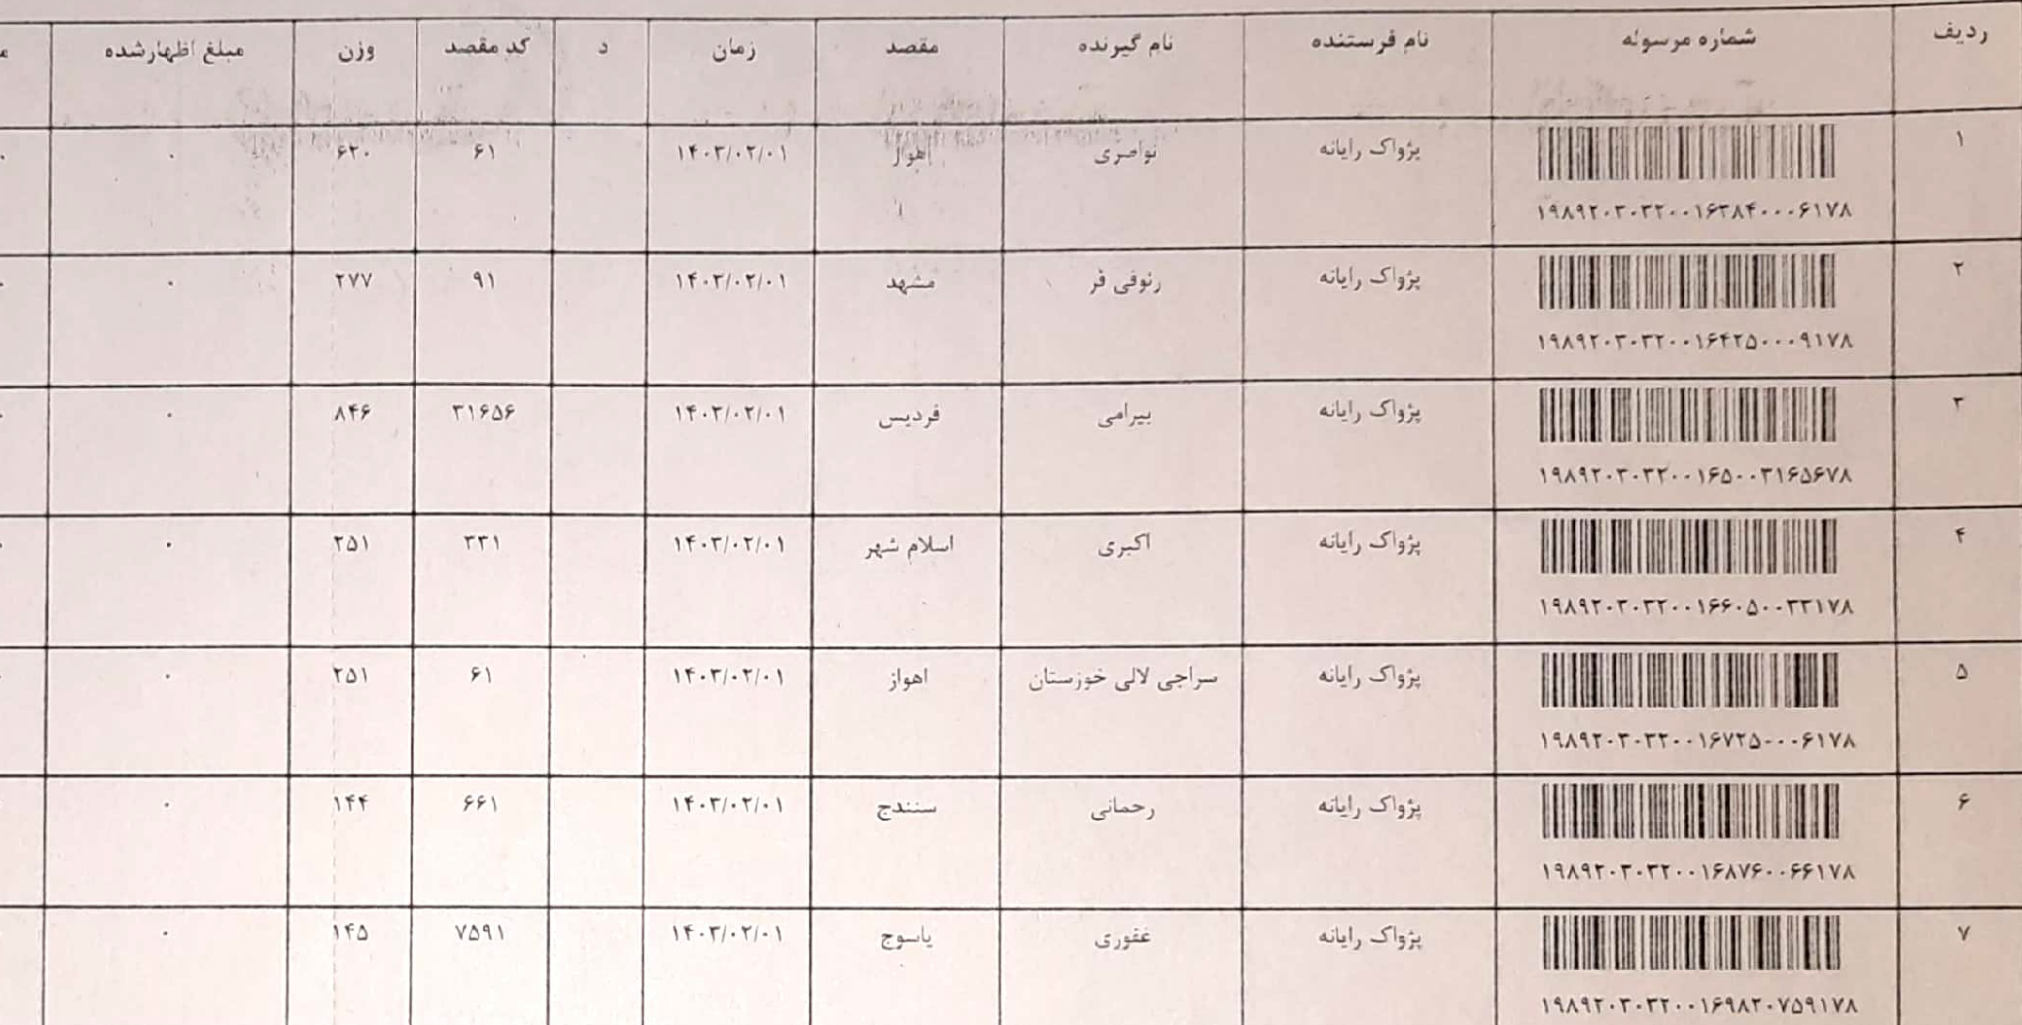 ردیف شماره مرسوله نام فرستنده نام گیرنده مقصد زمان د کد مقصد وزن مبلغ اظهارشده
۱ پژواک رایانه نواصری اهواز ۱۴۰۳/۰۲/۰۱ ۶۱ ۶۲۰ ۰
۱۹۸۹۲۰۳۰۳۲۰۰۱۶۳۸۴۰۰۰۶۱۷۸
۲ پژواک رایانه رئوفی فر مشهد ۱۴۰۳/۰۲/۰۱ ۹۱ ۲۷۷ ۰
۱۹۸۹۲۰۳۰۳۲۰۰۱۶۴۲۵۰۰۰۹۱۷۸
۳ پژواک رایانه بیرامی فردیس ۱۴۰۳/۰۲/۰۱ ۳۱۶۵۶ ۸۴۶ ۰
۱۹۸۹۲۰۳۰۳۲۰۰۱۶۵۰۰۳۱۶۵۶۷۸
۴ پژواک رایانه اکبری اسلام شهر ۱۴۰۳/۰۲/۰۱ ۳۳۱ ۲۵۱ ۰
۱۹۸۹۲۰۳۰۳۲۰۰۱۶۶۰۵۰۰۳۳۱۷۸
۵ پژواک رایانه سراجی لالی خوزستان اهواز ۱۴۰۳/۰۲/۰۱ ۶۱ ۲۵۱ ۰
۱۹۸۹۲۰۳۰۳۲۰۰۱۶۷۲۵۰۰۰۶۱۷۸
۶ پژواک رایانه رحمانی سنندج ۱۴۰۳/۰۲/۰۱ ۶۶۱ ۱۴۴ ۰
۱۹۸۹۲۰۳۰۳۲۰۰۱۶۸۷۶۰۰۶۶۱۷۸
۷ پژواک رایانه غفوری یاسوج ۱۴۰۳/۰۲/۰۱ ۷۵۹۱ ۱۴۵ ۰
۱۹۸۹۲۰۳۰۳۲۰۰۱۶۹۸۲۰۷۵۹۱۷۸